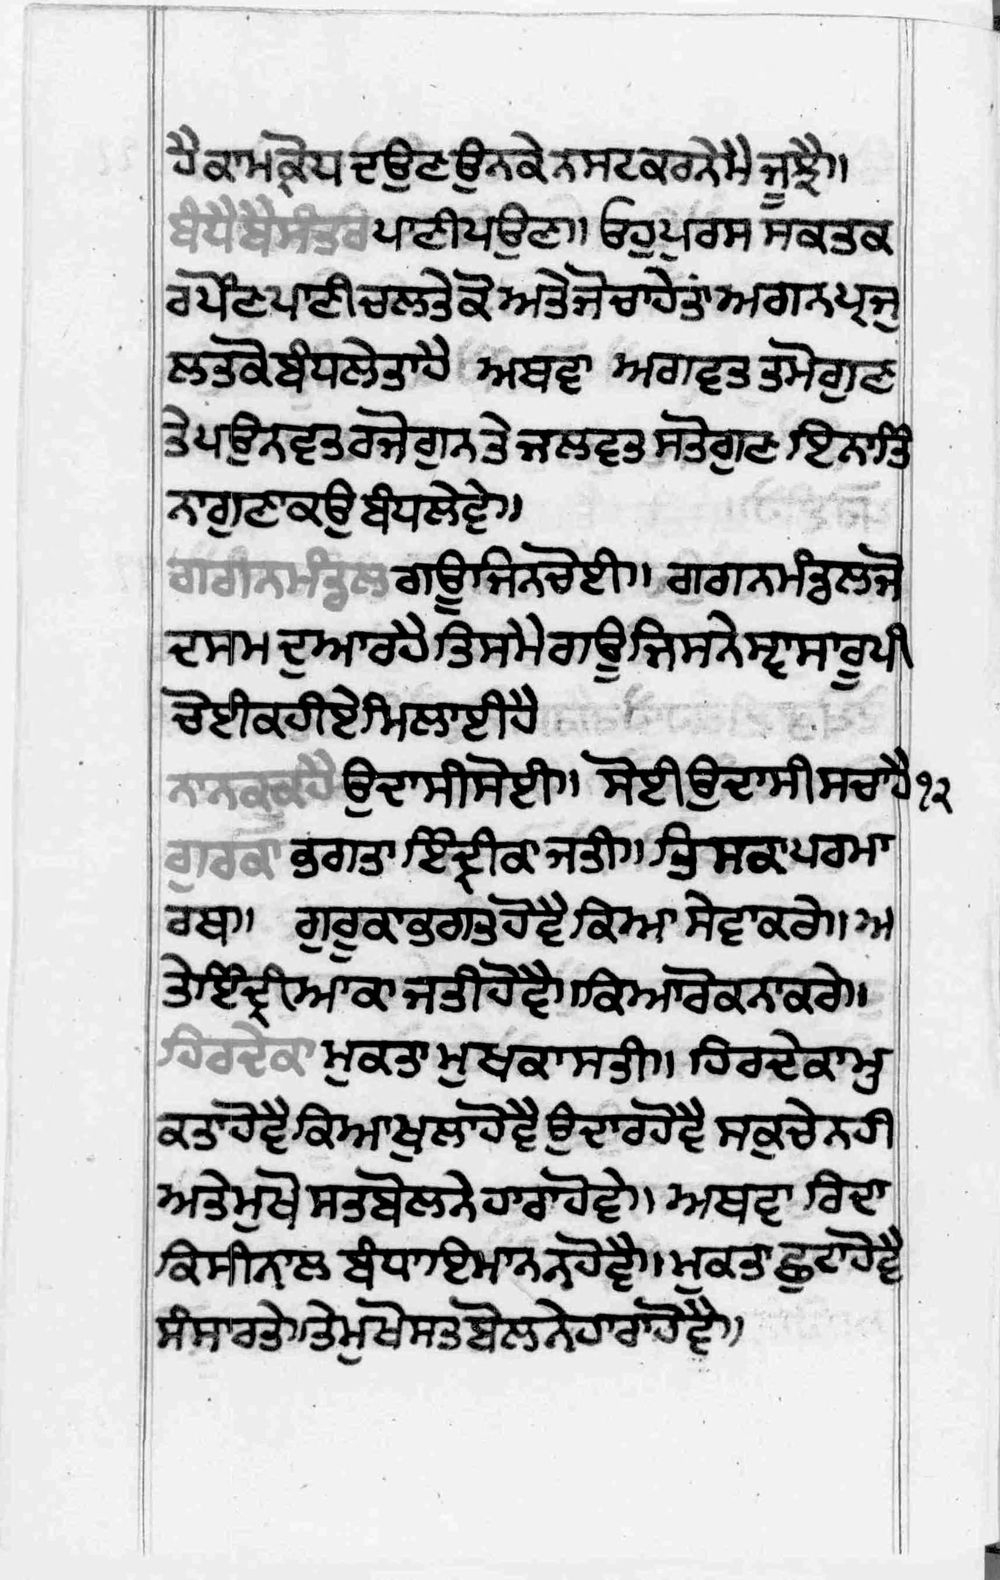 ਹੈ ਕਾਮ ਕ੍ਰੋਧ ਦਉਣ ਉਨਕੇ ਨਸਟ ਕਰਨੇ ਮੈ ਜੂਝੈ॥
ਬੰਧੈ ਬੈਸੰਤਰ ਪਾਣੀ ਪਉਣ॥ ਓਹੁ ਪੁਰਸ ਸਕਤ ਕ
ਰ ਪੌਣ ਪਾਣੀ ਚਲਤੇ ਕੋ ਅਤੇ ਜੋ ਚਾਹੇ ਤਾਂ ਅਗਨ ਪ੍ਰਜੁ
ਲਤ ਕੋ ਬੰਧ ਲੇਤਾ ਹੈ ਅਥਵਾ ਅਗਵਤ ਤਮੋਗੁਣ
ਤੇ ਪਉਨਵਤ ਰਜੋਗੁਨ ਤੇ ਜਲਵਤ ਸਤੋਗੁਣ ਇਨਾ ਤਿੰ
ਨਾ ਗੁਣਾ ਕਉ ਬੰਧ ਲੇਵੇ॥
ਗਗਨ ਮੰਡਲ ਗਊ ਜਿਨ ਚੋਈ॥ ਗਗਨ ਮੰਡਲ ਜੋ
ਦਸਮ ਦੁਆਰ ਹੈ ਤਿਸ ਮੈ ਗਊ ਜਿਸਨੇ ਸ੍ਵਾਸਾ ਰੂਪੀ
ਚੋਈ ਕਹੀਏ ਮਿਲਾਈ ਹੈ
ਨਾਨਕ ਕਹੈ ਉਦਾਸੀ ਸੋਈ॥ ਸੋਈ ਉਦਾਸੀ ਸਚਾ ਹੈ ੧੨
ਗੁਰ ਕਾ ਭਗਤਾ ਇੰਦ੍ਰੀ ਕਾ ਜਤੀ॥ ਤਿਸਕਾ ਪਰਮਾ
ਰਥ॥ ਗੁਰੂ ਕਾ ਭਗਤ ਹੋਵੈ ਕਿਆ ਸੇਵਾ ਕਰੇ॥ ਅ
ਤੇ ਇੰਦ੍ਰੀਆ ਕਾ ਜਤੀ ਹੋਵੈ॥ ਕਿਆ ਰੋਕਨਾ ਕਰੇ॥
ਹਿਰਦੇ ਕਾ ਮੁਕਤਾ ਮੁਖ ਕਾ ਸਤੀ॥ ਹਿਰਦੇ ਕਾ ਮੁ
ਕਤਾ ਹੋਵੈ ਕਿਆ ਖੁਲਾ ਹੋਵੈ ਉਦਾਰ ਹੋਵੈ ਸਕੁਚੇ ਨਹੀ
ਅਤੇ ਮੁਖੋ ਸਤ ਬੋਲਨੇ ਹਾਰਾ ਹੋਵੇ॥ ਅਥਵਾ ਰਿਦਾ
ਕਿਸੀ ਨਾਲ ਬੰਧਾਇਮਾਨ ਨ ਹੋਵੈ॥ ਮੁਕਤਾ ਛੁਟਾ ਹੋਵੈ
ਸੰਸਾਰ ਤੇ॥ ਤੇ ਮੁਖੋ ਸਤ ਬੋਲਨੇ ਹਾਰਾ ਹੋਵੈ॥